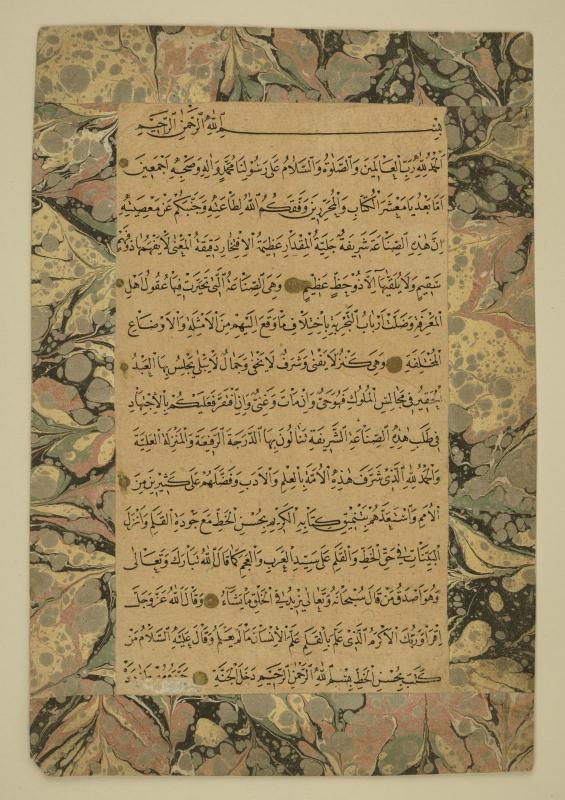 بسم الله الرحمن الرحيم
الحمد لله رب العالمين والصلوة والسلام على رسولنا محمد واله وصحبه اجمعين
اما بعد يا معشر الكتاب والمحررين وفقكم الله لطاعته وجنبكم عن معصيته
ان هذه الصناعة شريفة جلية المقدار عظيمة الافتخار دقيقة المعنى لا يفهمها ذو فهم
سقيم ولا يلقيها الا ذو حظ عظيم وهي الصناعة التي تحيرت فيها عقول اهل
المعرفة وضلت ارباب التجربة باختلاف ما وقع اليهم من الامثلة والاوضاع
المختلفة وهي كنز لا يفنى وشرف لا يخفى وجمال لا يبلى يجلس بها العبد
الحقير في مجالس الملوك فهو حي وان مات وغني وان افتقر فعليكم بالاجتهاد
في طلب هذه الصناعة الشريفة تنالون بها الدرجة الرفيعة والمنزلة العلية
والحمد لله الذي شرف هذه الامة بالعلم والادب وفضلهم على كثير من
الامم واستعدهم بتنميق كتابه الكريم بحسن الخط مع جودة القلم وانزل
البينات في حق الخط والقلم على سيد العرب والعجم كما قال الله تبارك وتعالى
وهو اصدق من قال سبحانه وتعالى يزيد في الخلق ما يشاء وقال الله عز وجل
اقرا وربك الاكرم الذي علم بالقلم علم الانسان ما لم يعلم وقال عليه السلام من
كتب بحسن الخط بسم الله الرحمن الرحيم دخل الجنة